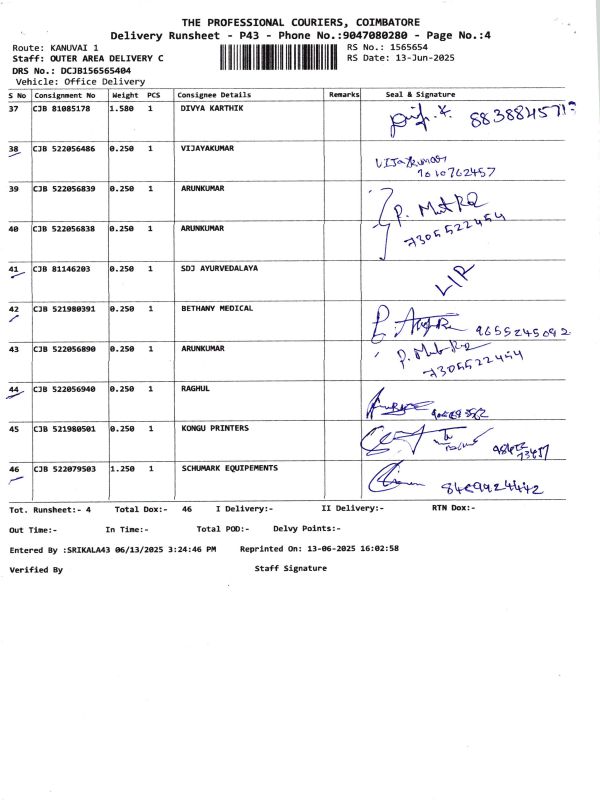 THE PROFESSIONAL COURIERS, COIMBATORE
Delivery Runsheet - P43 - Phone No.:9047080280 - Page No.:4
Route: KANUVAI 1 RS No.: 1565654
Staff: OUTER AREA DELIVERY C RS Date: 13-Jun-2025
DRS No.: DCJB156565404
Vehicle: Office Delivery
S No Consignment No Weight PCS Consignee Details Remarks Seal & Signature
37 CJB 81085178 1.580 1 DIVYA KARTHIK
38 CJB 522056486 0.250 1 VIJAYAKUMAR Vijaykumar
7010762457
39 CJB 522056839 0.250 1 ARUNKUMAR
40 CJB 522056838 0.250 1 ARUNKUMAR 7305522454
41 CJB 81146203 0.250 1 SDJ AYURVEDALAYA
42 CJB 521980391 0.250 1 BETHANY MEDICAL 9655245092
43 CJB 522056890 0.250 1 ARUNKUMAR
7305522454
44 CJB 522056940 0.250 1 RAGHUL
45 CJB 521980501 0.250 1 KONGU PRINTERS
46 CJB 522079503 1.250 1 SCHUMARK EQUIPEMENTS
Tot. Runsheet:- 4 Total Dox:- 46 I Delivery:- II Delivery:- RTN Dox:-
Out Time:- In Time:- Total POD:- Delvy Points:-
Entered By :SRIKALA43 06/13/2025 3:24:46 PM Reprinted On: 13-06-2025 16:02:58
Verified By Staff Signature